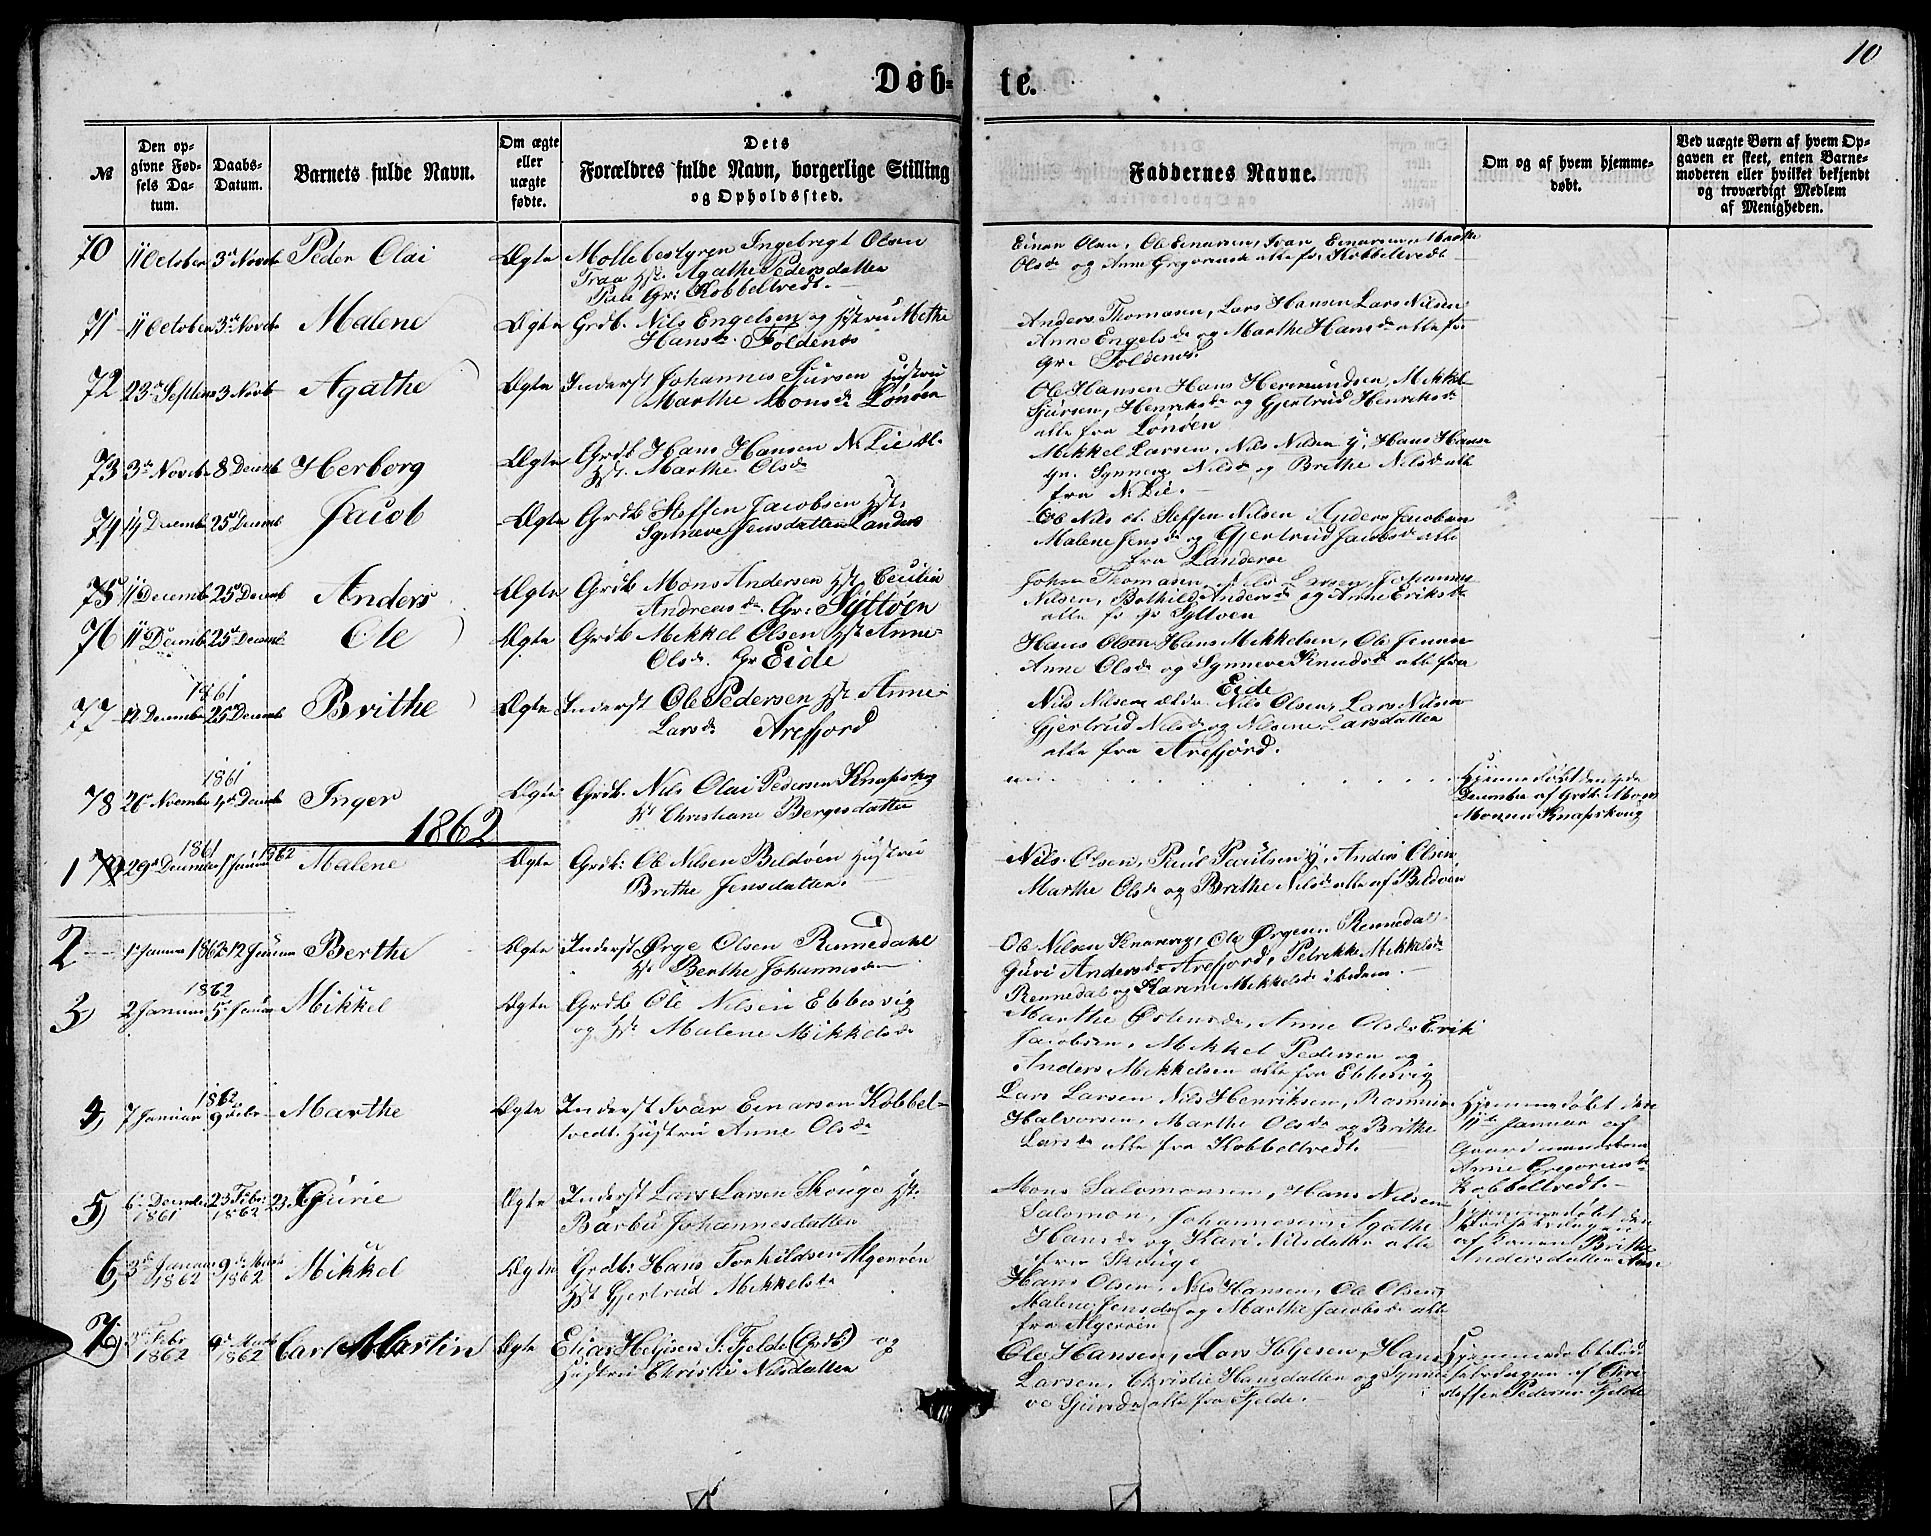 10
Døb= te.
№
Den op-
givne Fød-
sels Da-
tum.
Daabs-
Datum.
Barnets fulde Navn.
Om ægte
eller
uægte
fødte.
Dets
Forældres fulde Navn, borgerlige Stilling
og Opholdssted.
Faddernes Navne.
Om og af hvem hjemme-
døbt.
Ved uægte Børn af hvem Op-
gaven er skeet, enten Barne-
moderen eller hvilket bekjendt
og troværdigt Medlem
af Menigheden.
70 11 October 3die Novbr Peder Olai Ægte Møllebestyrer Ingebrigt Olsen
Hst. Agathe Pedersdatter
Paa Gr: Kobbeltvedt.
Einar Olsen, Ole Einarsen, Ivar Einarsen, Marthe
Olsdr og Anne Gregoriusdr alle fr. Kobbeltvedt
71 11 October 3die Novbr Malene Ægte Grdb. Nils Engelsen og Hstru Methe
Hansdr. Foldenæs
Anders Thomasen, Lars Hansen Lars Nilsen
Anne Engelsdr og Marthe Hansdr alle fr
Gr: Foldenæs.
72 23de Septem 3 Novb Agathe Ægte Inderst Johannes Sjursen Hustru
Marthe Monsdr Lønøen
Ole Hansen Hans Hermundsen, Mikkel
Sjursen, Henriksdr og Gjertrud Henriksdr
alle fra Lønøen
73 3die Novbr 8 Decemb Herborg Ægte Grdb Hans Hansen N. Lie
Hst. Marthe Olsdr
Mikkel Larsen, Nils Nilsen y, Hans Hansen
Synneve Nilsdr og Brithe Nilsdr alle
fra N. Lie.
74 14 Decemb 25 Decemb Jacob Ægte Grdb Steffen Jacobsen Hst.
Synneve Jensdatter Landerø
Ole Nils Steffen Nilsen Anders Jacobsen
Malene Jensdr og Gjertrud Jacobsdr alle
fra Landerøe
75 11 Decemb 25de Decemb Anders Ægte Grdb Mons Andersen Hst. Cecilie
Andreasdr Gr: Syltøen
Johan Thomasen, Nils Larsen, Johannes
Nilsen, Bothild Andersdr og Anne Eriksdr
alle fr. gr Syltøen
76 11 Decemb 25de Decemb Ole Ægte Grdb Mikkel Olsen Hst Anne
Olsdr. Gr Eide
Hans Olsen Hans Mikkelsen, Ole Jensen
Anne Olsdr og Synneve Knudsdr alle fra
Eide
1861
77 12 Decembr 25de Decemb Brithe Ægte Inderst Ole Pedersen Hst Anne
Larsdr Arefjord
Nils Nilsen ældr. Nils Olsen, Lars Nilsen
Gjertrud Nilsdr og Nilsine Larsdatter
alle fra Arefjord.
1861
78 26de Novembr 4de Decbr Inger Ægte Grdb. Nils Olai Pedersen Knapskog
Hst Christiane Bergesdatter
Hjemmedøbt den 4de
December af Grdb. Mons
Monsen Knapskoug
1862
1861 1862
1 79 29de Decembr 1ste Januar Malene Ægte Grdb: Ole Nilsen Bildøen Hustru
Brithe Jensdatter.
Nils Olsen, Paul Paulsen y, Anders Olsen,
Marthe Olsdr og Brithe Nilsdr alle af Bildøen
2 1ste Januar 1862 12 Januar Berthe Ægte Inderst Ørge Olsen Rennedahl
Hst Berthe Johannesdr
Ole Nilsen Knarvig, Ole Ørgesen Rennedal
Guri Andersdr Arefjord, Petrikke Mikkelsdr
Rennedal og Karen Mikkelsdr ibidem.
1862
3 2 Januar 5te Januar Mikkel Ægte Grdb Ole Nilsen Ebbesvig
og Hst Malene Mikkelsdr
Marthe Østensdr, Anne Olsdr Erik
Jacobsen, Mikkel Pedersen og
Anders Mikkelsen alle fra Ebbesvig
1862
4 7 Januar 9 Febr Marthe Ægte Inderst Ivar Einarsen Kobbel-
tvedt Hustru Anne Olsdr
Lars Larsen Nils Henriksen, Rasmus
Halvorsen, Marthe Olsdr og Brithe
Larsdr alle fra Kobbeltvedt.
Hjemmedøbt den
11te Januar af
Gaardmandskone
Anne Gregoriusdr
Kobbeltvedt.
5 6te Decembr 1861 23 Febr. 1862 Gurie Ægte Inderst Lars Larsen Skouge Hst.
Barbu Johannesdatter
Mons Salomonsen, Hans Nilsen
Salomon, Johannesen Agathe
Hansdr og Kari Nilsdatter alle
fra Skouge
Hjemmedøbt den
af Konen Brithe
Andersdatter
6 3de Januar 1862 9de Marts 1862 Mikkel Ægte Grdb: Hans Torkildsen Algerøen
Hst Gjertrud Mikkelsdr
Hans Olsen, Nils Hansen, Ole Olsen,
Malene Jensdr og Marthe Jacobsdr alle
fra Algerøen
7 3de Febr 1862 9de Marts 1862 Carl Martin Ægte Elias Helgesen S. Fjelde (Grdb) og
Hustru Christie Nilsdatter
Ole Hansen, Lars Helgesen, Hans
Larsen, Christie Hansdatter og Synne-
ve Sjursdr alle fra Fjelde.
Hjemmedøbt
af Chri-
stoffer Pedersen Fjelde